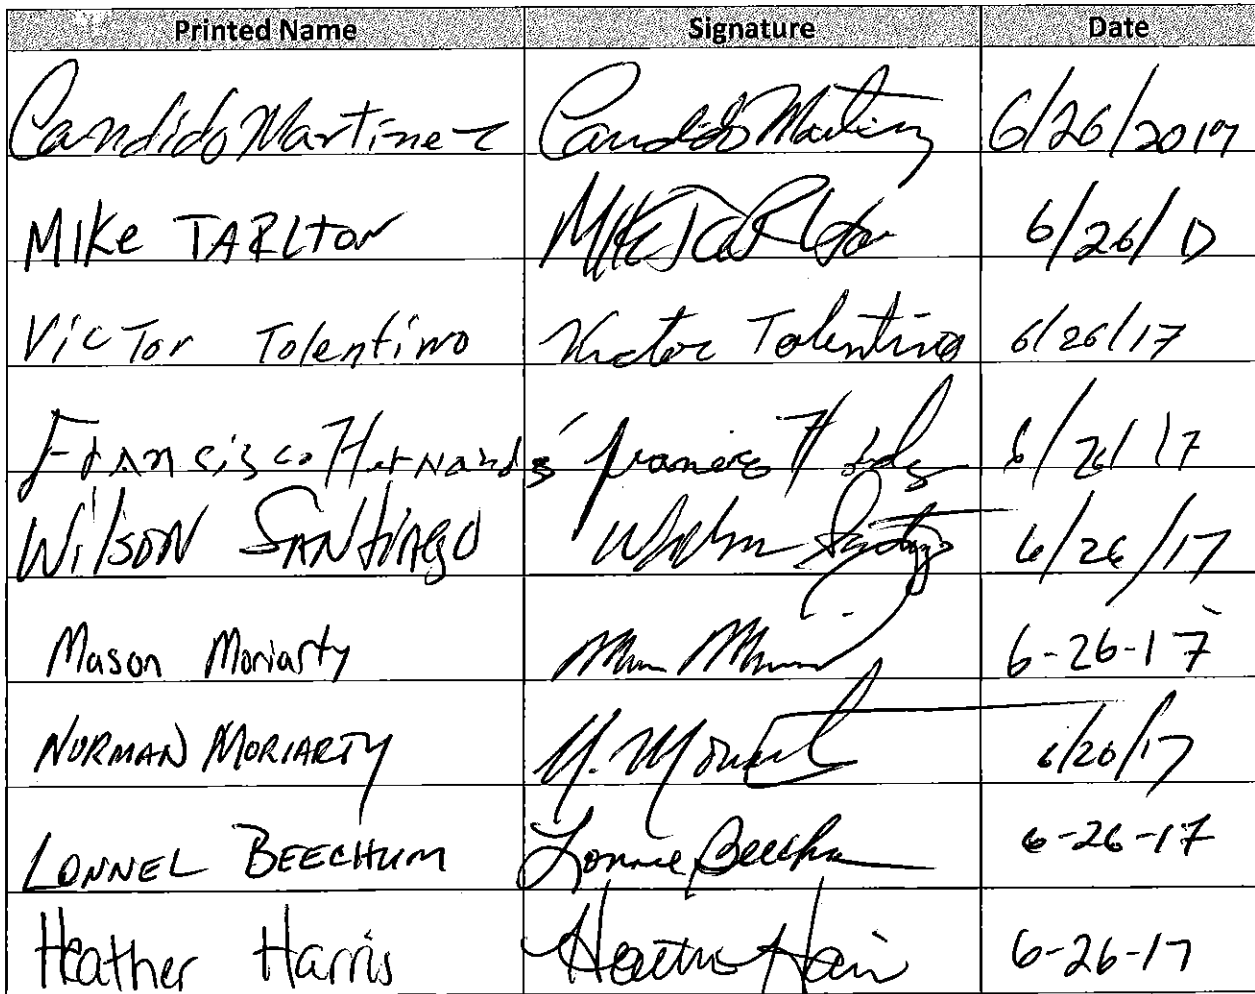 Printed Name Signature Date
Candido Martinez Candido Martinez 6/26/2017
MIKe TARLton MIKe TaRlton 6/26/17
VicTor Tolentino Victor Tolentino 6/26/17
Francisco Hernand 6/26/17
WilSON SANtiAgo Wilson Santiago 6/26/17
Mason Moriarty 6-26-17
NORMAN MORIARTY N. 6/26/17
LONNEL BEECHUM Lonnie Beechum 6-26-17
Heather Harris Heather Harris 6-26-17